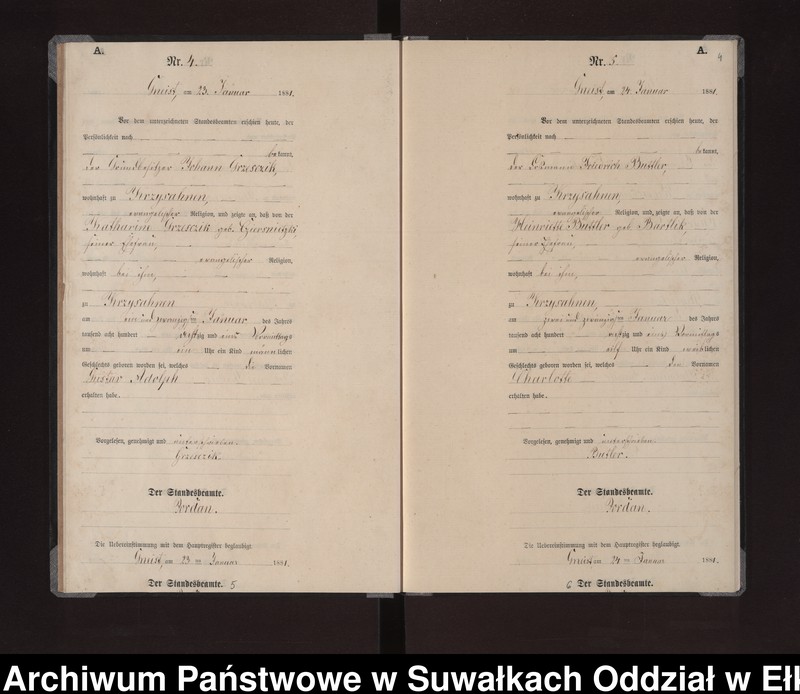 A.
Nr. 4.
Gneist, am 23. Januar 1881.
Vor dem unterzeichneten Standesbeamten erschien heute, der
Persönlichkeit nach
bekannt,
der Grundbesitzer Johann Grzesczik,
wohnhaft zu Krzysahnen,
evangelischer Religion, und zeigte an, daß von der
Katharine Grzesczik geb.
seiner Ehefrau,
evangelischer Religion,
wohnhaft bei ihm,
zu Krzysahnen
am ein und zwanzigsten Januar des Jahres
tausend acht hundert achtzig und eins Vormittags
um ein Uhr ein Kind männlichen
Geschlechts geboren worden sei, welches die Vornamen
Gustav Adolph
erhalten habe.
Vorgelesen, genehmigt und unterschrieben.
Grzesczik.
Der Standesbeamte.
Jordan.
Die Uebereinstimmung mit dem Hauptregister beglaubigt.
Gneist, am 23 ten Januar 1881.
Der Standesbeamte. 5
A.
4
Nr. 5.
Gneist, am 24. Januar 1881.
Vor dem unterzeichneten Standesbeamten erschien heute, der
Persönlichkeit nach
bekannt,
der Losmann Friedrich Buttler,
wohnhaft zu Krzysahnen,
evangelischer Religion, und zeigte an, daß von der
Heinriette Buttler geb. Bartlik
seiner Ehefrau,
evangelischer Religion,
wohnhaft bei ihm,
zu Krzysahnen,
am zwei und zwanzigsten Januar des Jahres
tausend acht hundert achtzig und eins Vormittags
um elf Uhr ein Kind weiblichen
Geschlechts geboren worden sei, welches den Vornamen
Charlotte
erhalten habe.
Vorgelesen, genehmigt und unterschrieben.
Butler.
Der Standesbeamte.
Jordan.
Die Uebereinstimmung mit dem Hauptregister beglaubigt.
Gneist am 24 ten Januar 1881.
6 Der Standesbeamte.
Archiwum Państwowe w Suwałkach Oddział w Ełk